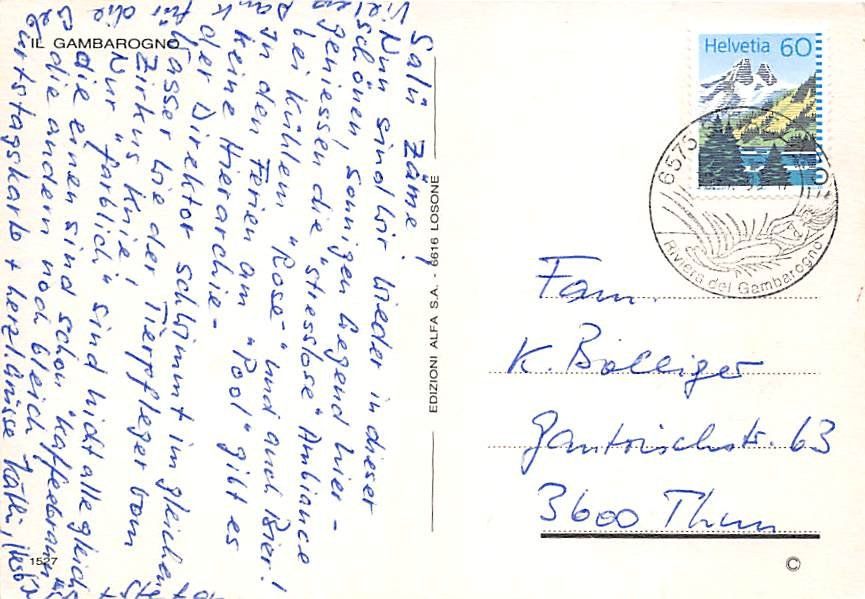 IL GAMBAROGNO
Salü Zäme!
Nun sind wir wieder in dieser
schönen, sonnigen Gegend hier -
geniessen die "stresslose" Ambiance
bei kühlem "Rose" und auch Bier!
In den Ferien am "Pool" gibt es
keine Hierarchie -
der Direktor schwimmt im gleichen
Wasser wie der Tierpfleger vom
Zirkus Knie!
Nur "farblich" sind nicht alle gleich
die einen sind schon "kaffeebraun"
die andern noch bleich
Vielen Dank für die Geburtstagskarte + herzl. Grüsse Käthi,
1527
EDIZIONI ALFA S.A. - 6616 LOSONE
Helvetia 60
6575
Riviera del Gambarogno
Fam.
K. Bolliger
Gantrischstr. 63
3600 Thun
©